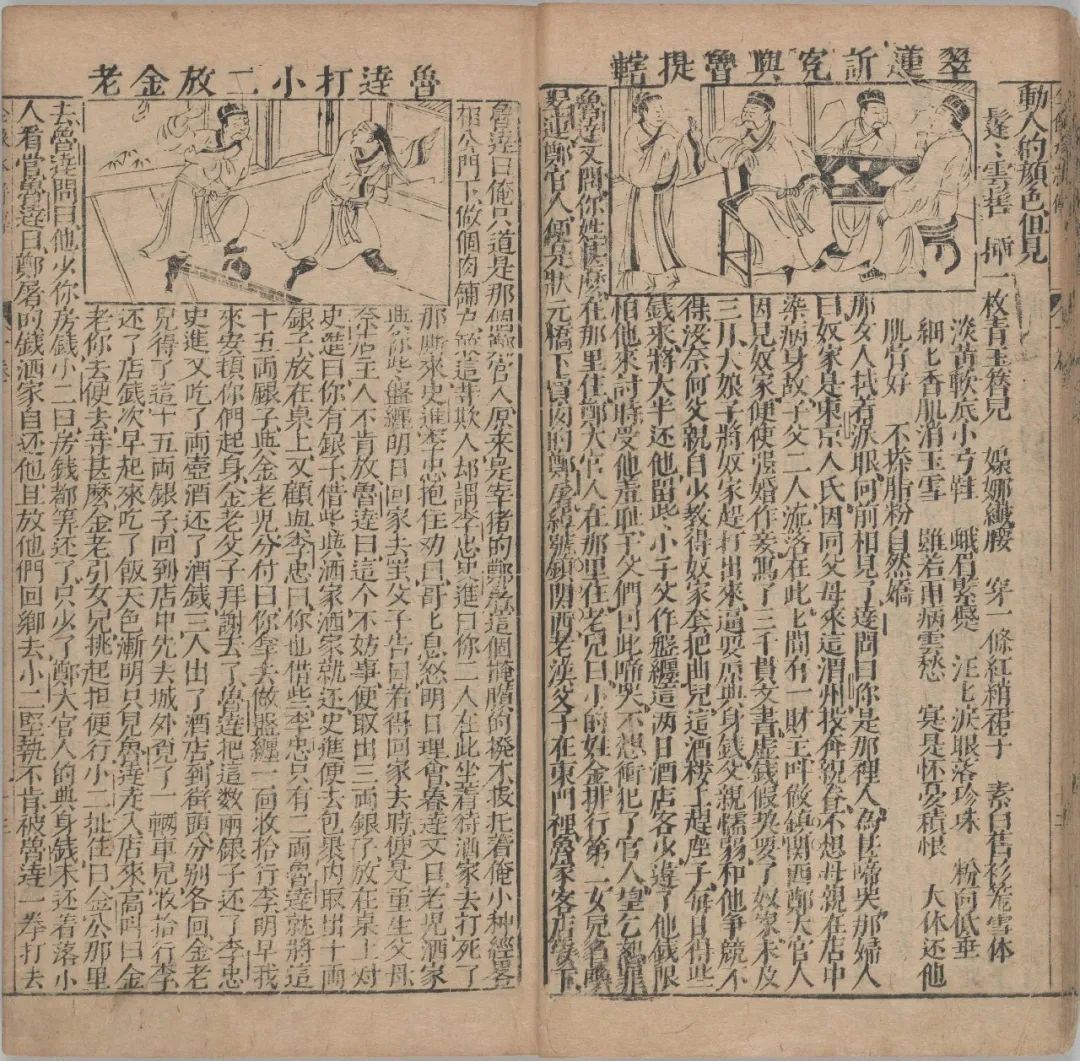 翠蓮訴冤與魯提轄
動人的顏色但見
鬔〻雲髻 揷一枚青玉簪兒 嬝娜纖腰 穿一條紅綃裙子 素白舊衫籠雪体
淡黃軟底小弓鞋 蛾眉緊蹙 汪匕淚眼落珍珠 粉向低垂
細匕香肌消玉雪 雖若雨病雲愁 寔是怀憂積恨 大体还他
肌骨好 不搽脂粉自然嬌
那女人拭着淚眼向前相見了達問曰你是那裡人為甚啼哭那婦人
曰奴家是東京人氏因同父母來這渭州投奔親眷不想母親在店中
染病身故子父二人流落在此匕間有一財主呌做鎮関西鄭大官人
因見奴家便使强婚作妾寫了三千貫文書虛錢假契要了奴家未及
三月大娘子將奴家趕打出來逼要原典身錢父親懦弱和他爭競不
得沒奈何父親自少教得奴家套把曲兒這酒楼上趕座子每日得些
錢來將大半还他畱些小子父作盤纏這两日酒店客少違了他錢限
怕他來討時受他羞耻子父們囙此啼哭不想衝犯了官人望乞恕罪
魯達又問你姓甚麽在那里住鄭大官人在那里住老兒曰小的姓金排行第一女兒名喚
翠蓮鄭官人便是狀元橋下賣肉的鄭屠綽號鎮関西老漢父子在東門裡魯家客店安下
魯達打小二放金老
魯達曰俺只道是那個鄭大官人原來是宰猪的鄭屠這個腌臢的潑才投托着俺小种經畧
相公門下做個肉舖户原這等欺人却謂李忠史進曰你二人在此坐着待洒家去打死了
那廝來史進李忠抱住劝曰哥匕息怒明日理會魯達又曰老兒洒家
與你些盤纏明日回家去罢父子告曰若得回家去時便是重生父母
奈店主人不肯放魯達曰這个不妨事便取出三両銀子放在桌上对
史進曰你有銀子借些與洒家洒家就还史進便去包果内取出十両
銀子放在桌上又顧李忠曰你也借些李忠只有二両魯達就將這
十五両銀子與金老兒分付曰你拿去做盤纏一面收拾行李明早我
來安頓你們起身金老父子拜謝去了魯達把這数兩銀子还了李忠
史進又吃了両壺酒还了酒錢三人出了酒店到街頭分别各回金老
兒得了這十五両銀子回到店中先去城外覓了一輛車兒收拾行李
还了店錢次早起來吃了飯天色漸明只見魯達走入店來高呌曰金
老你去便去等甚麽金老引女兒挑起担便行小二扯住曰金公那里
去魯達問曰他少你房錢小二曰房錢都筭还了只少了鄭大官人的典身錢未还着落小
人看管魯達曰鄭屠的錢洒家自还他且放他們回鄉去小二堅執不肯被魯達一拳打去